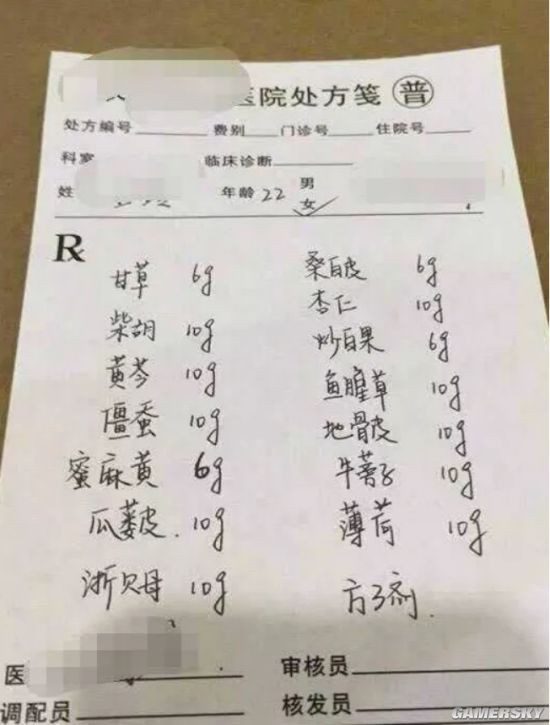 医院处方笺 普
处方编号 费别 门诊号 住院号
科室 临床诊断
姓 年龄 22 男
女✓
R
甘草 6g 桑白皮 6g
柴胡 10g 杏仁 10g
黄芩 10g 炒白果 6g
僵蚕 10g 鱼腥草 10g
蜜麻黄 6g 地骨皮 10g
瓜蒌皮 10g 牛蒡子 10g
浙贝母 10g 薄荷 10g
医 审核员
调配员 核发员
GAMERSKY